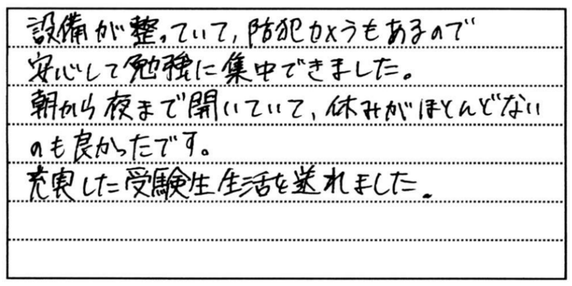 設備が整っていて、防犯カメラもあるので
安心して勉強に集中できました。
朝から夜まで開いていて、休みがほとんどない
のも良かったです。
充実した受験生生活を送れました。